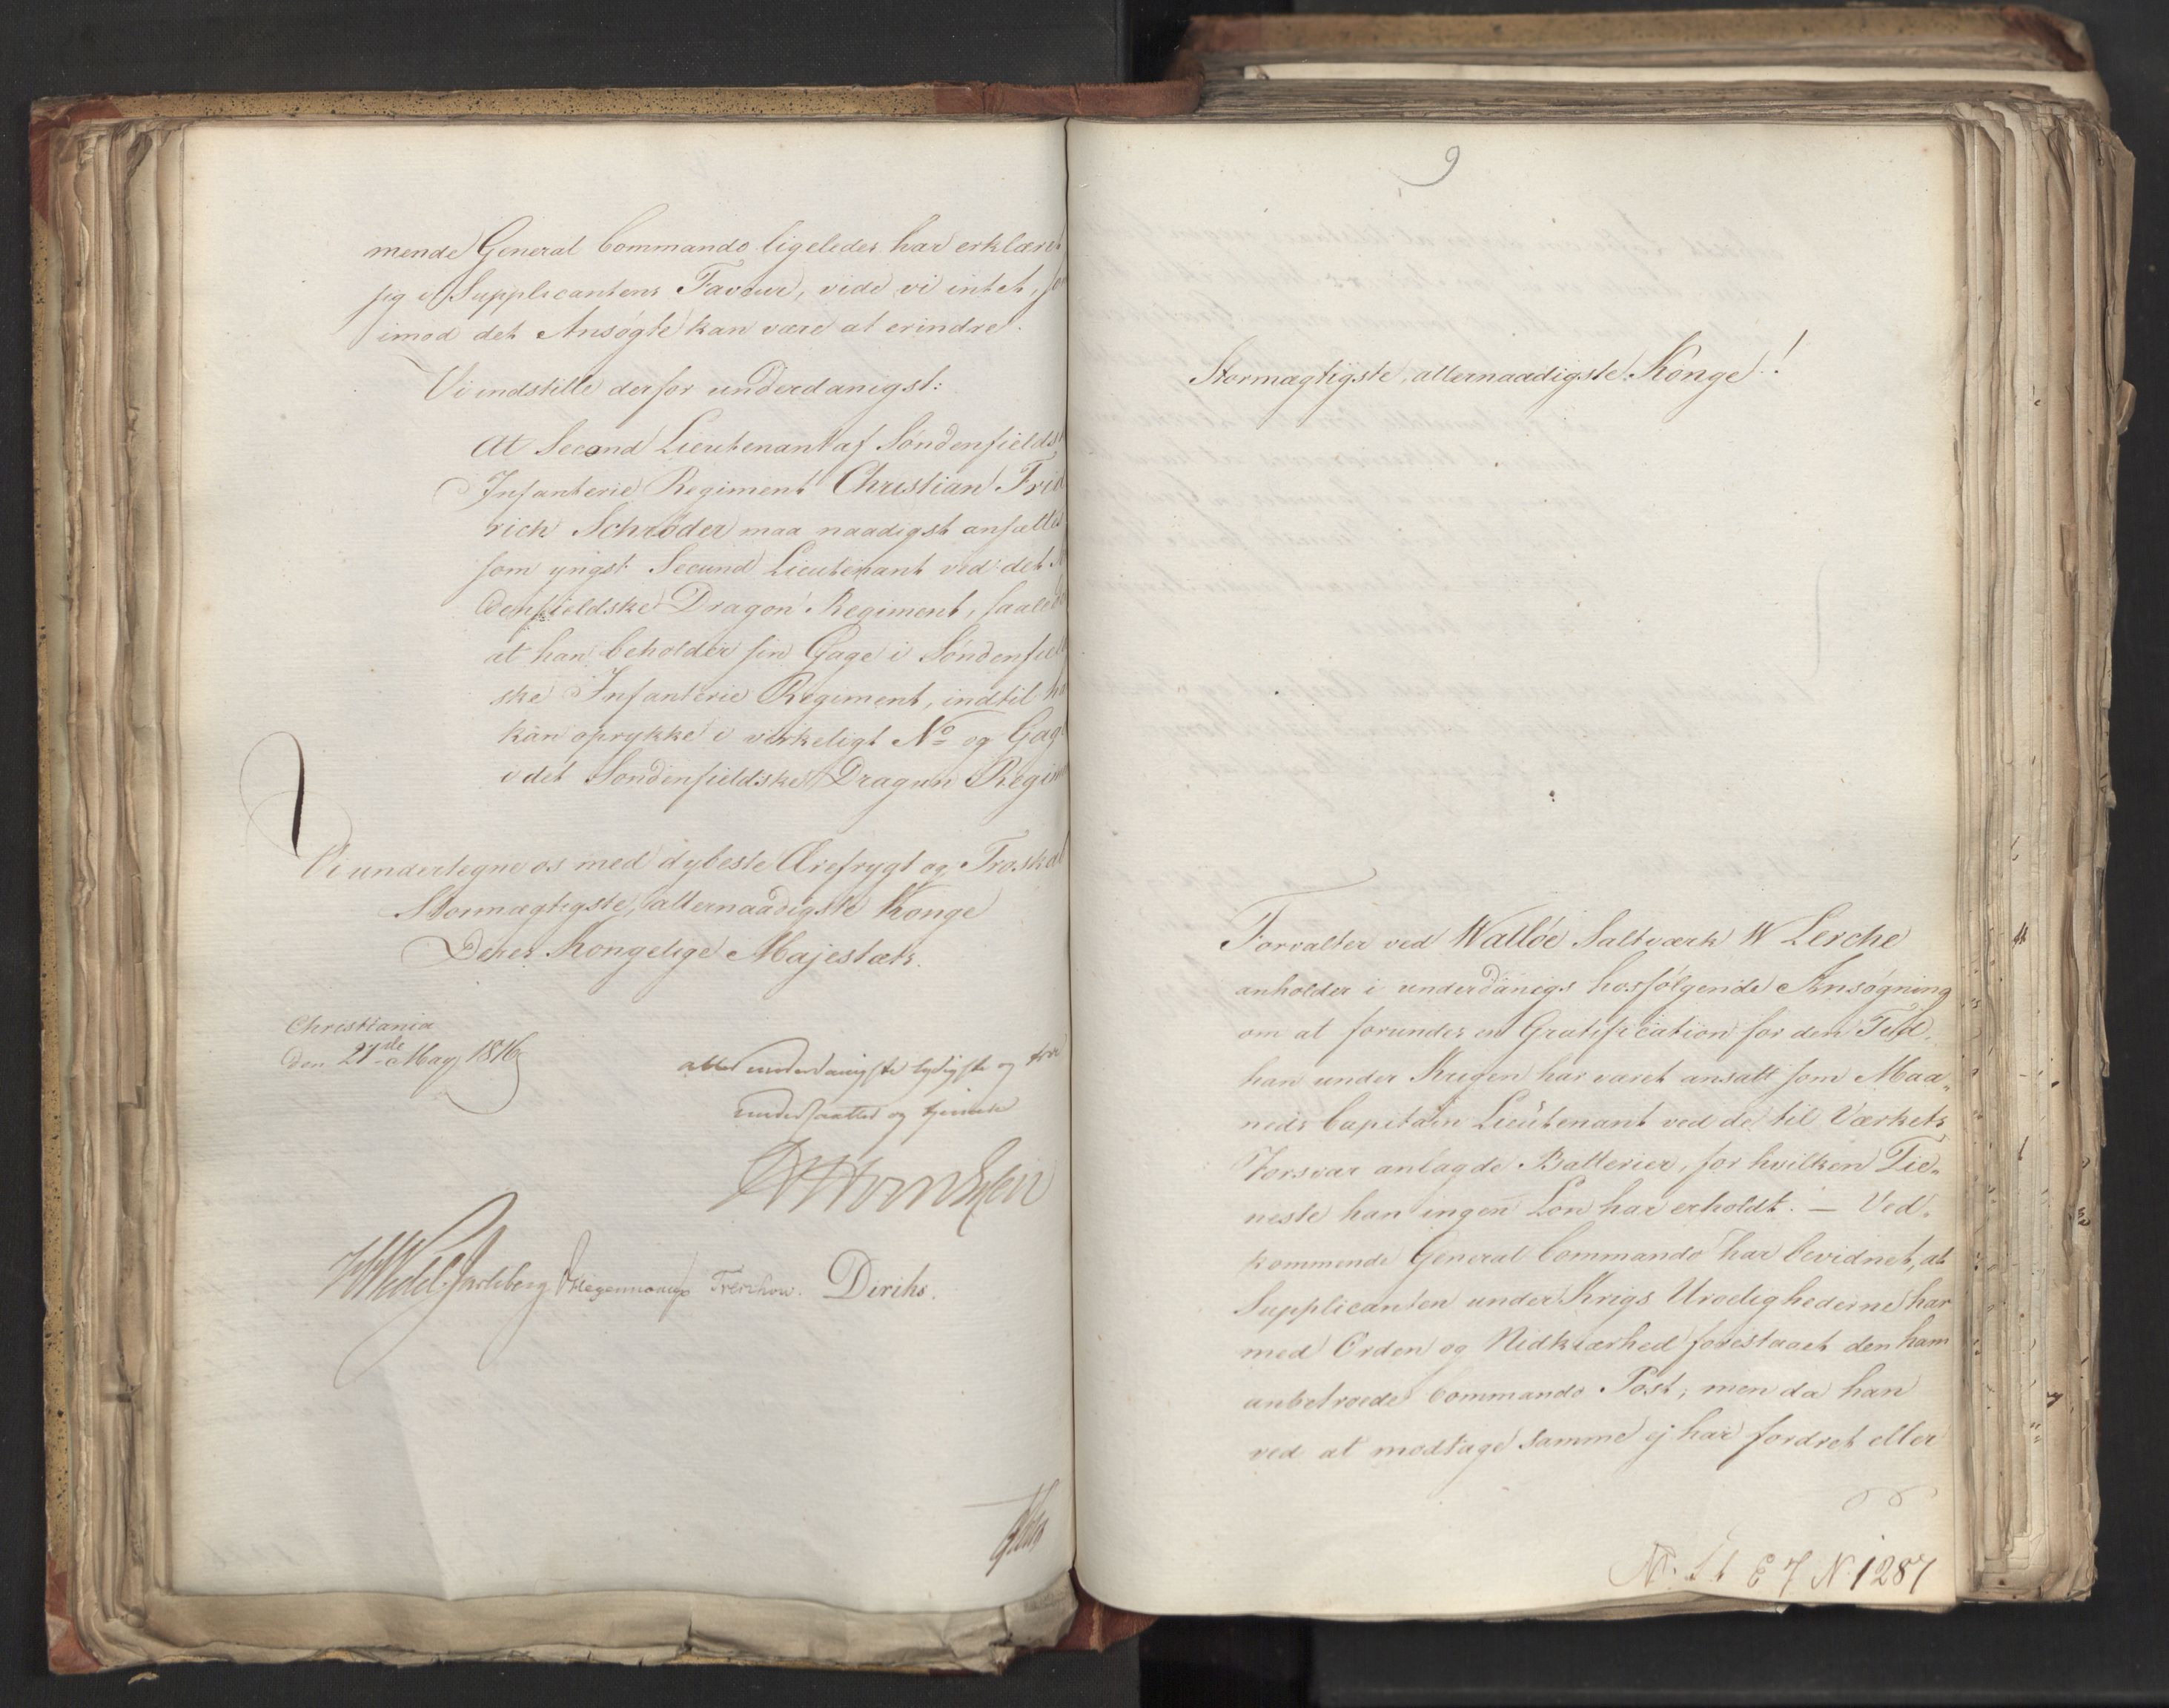 mende General Commando ligeledes har erklæret
sig i Supplicantens Faveur, vide vi intet, som
imod det Ansøgte kan være at erindre.
Vi indstille derfor underdanigst:
At Second Lieutenant af Søndenfields
Infanterie Regiment Christian Frid
rich Schrøder maa naadigst ansættes
som yngst Secund Lieutenant ved det
denfieldske Dragon Regiment, saaledes
at han beholder sin Gage i Søndenfield
ske Infanterie Regiment, indtil han
kan oprykke i virkeligt No og Gage
i det Søndenfieldske Dragun Regim
Vi undertegne os med dybeste Ærefrygt og Troskab
Stormægtigste, allernaadigste Konge
Deres Kongelige Majestæts.
Christiania
den 27de May 1816
allerunderdanigste lydigste og troe
undersaatter og tjenere
HWedel-Jarlsberg Hegermann Treschow. Diriks.
9
Stormægtigste, allernaadigste Konge!
Forvalter ved Walløe Saltværk W Lerche
anholder i underdanigs hosfølgende Ansøgning
om at forundes en Gratification for den Tid,
han under Krigen har været ansatt som Maa-
neds Capitain Lieutenant ved de til Værkets
Forsvar anlagde Batterier, for hvilken Tie-
neste han ingen Løn har erholdt. – Ved-
kommende General Commando har bevidnet, at
Supplicanten under Krigs Uroelighederne har
med Orden og Nidkiærhed forestaaet den ham
anbetroede Commando Post; men da han
ved at modtage samme ej har fordret eller
E 7 N 1287